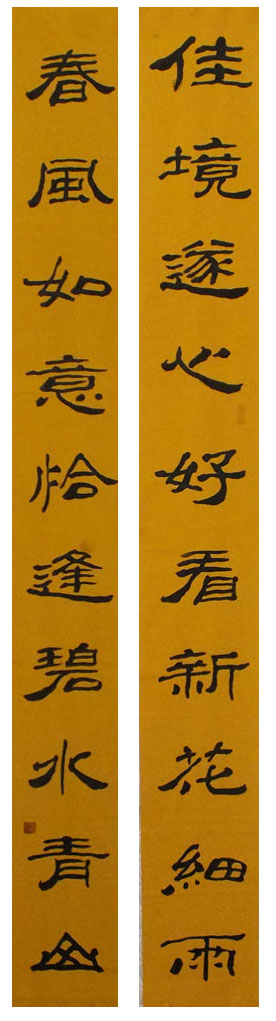 佳境遂心好看新花細雨
春風如意恰逢碧水青山